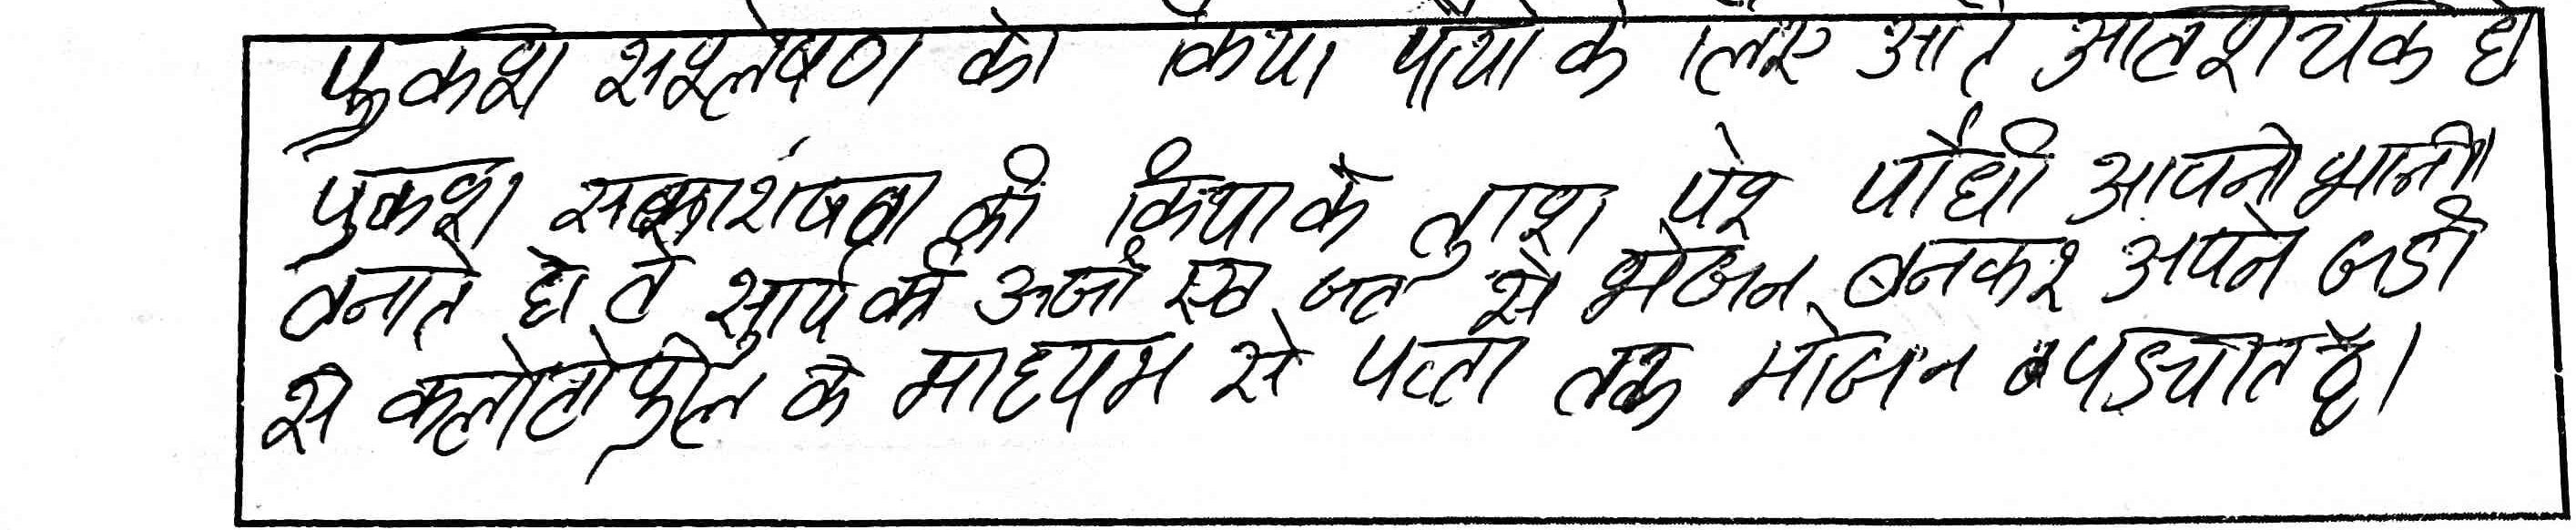 प्रकाश संश्लेषण की क्रिया पौधों के लिए अति आवश्यक है
प्रकाश की क्रिया के द्वारा पेड़ पौधों अपनी
बनाते है वे सुर्य की ऊर्जा जल से भोजन बनकर अपने जडों
से क्लोरोफिल के माध्यम से पत्ता तक भोजन पहुचाते है।